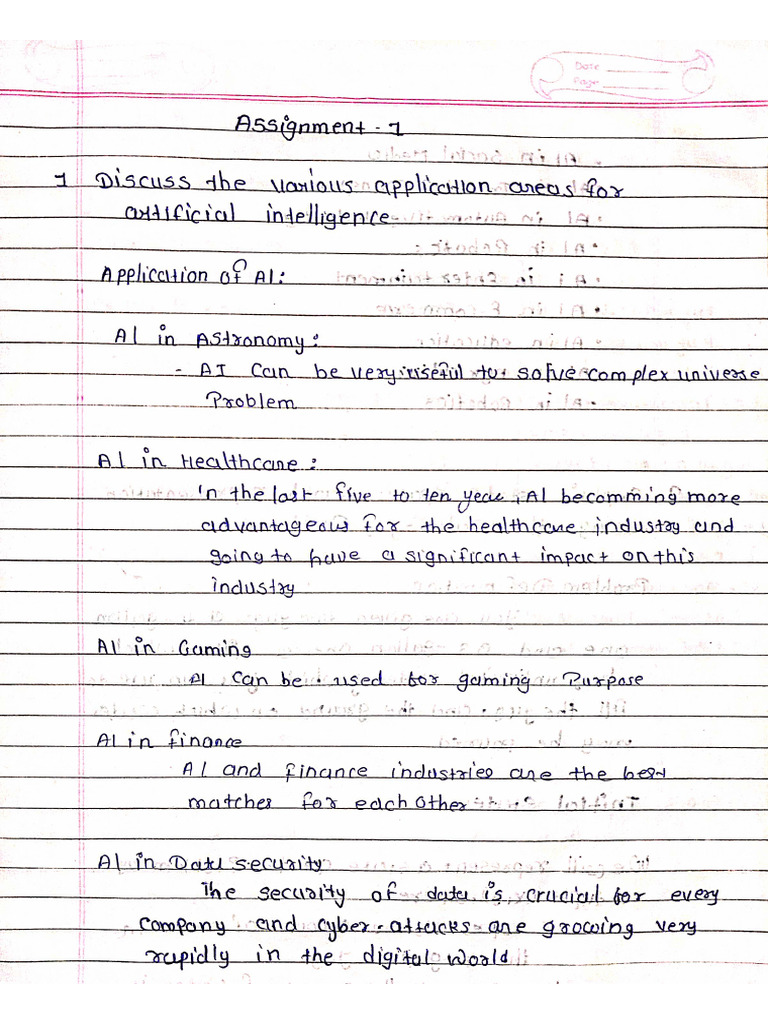 Date
Page
Assignment - 1
1 Discuss the various application areas for
artificial intelligence
Application of AI:
AI in Astronomy:
- AI can be very useful to solve complex universe
Problem
AI in Healthcare:
In the last five to ten year, AI becomming more
advantageous for the healthcare industry and
going to have a significant impact on this
industry
AI in Gaming
AI can be used for gaming Purpose
AI in finance
AI and finance industries are the best
matches for each other
AI in Data security
The security of data is crucial for every
company and cyber-attacks are growing very
rapidly in the digital world